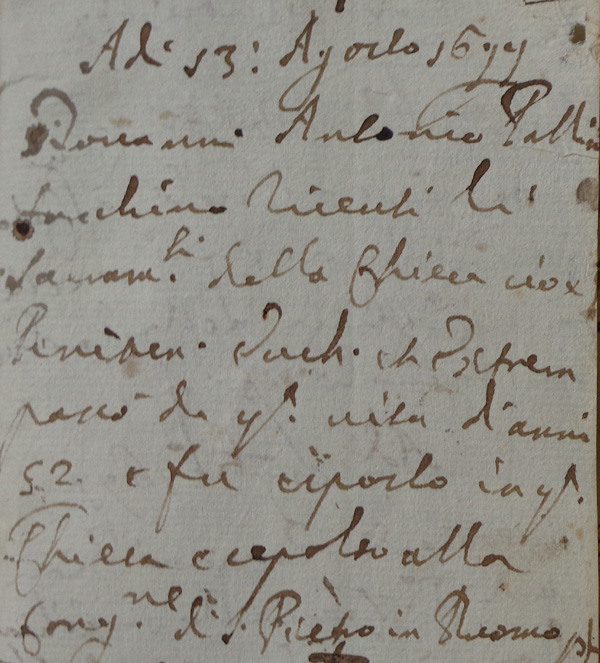 Adi 13: Agosto 1699
Giovanni Antonio Pallin
facchino ricevuti li
Sacram.ti della Chiesa cioè
Peniten. Euch. et Estrem
passò da q.ta vita d'anni
52 e fu esposto in q.ta
Chiesa e sepolto alla
Cong.ne di S. Pietro in Duomo